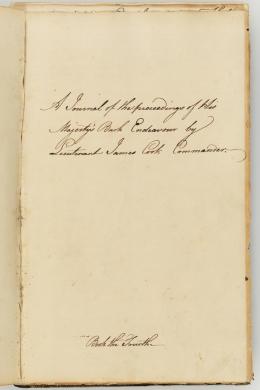 A Journal of the proceedings of His
Majesty's Bark Endeavour by
Lieutenant James Cook Commander.
Book the Fourth